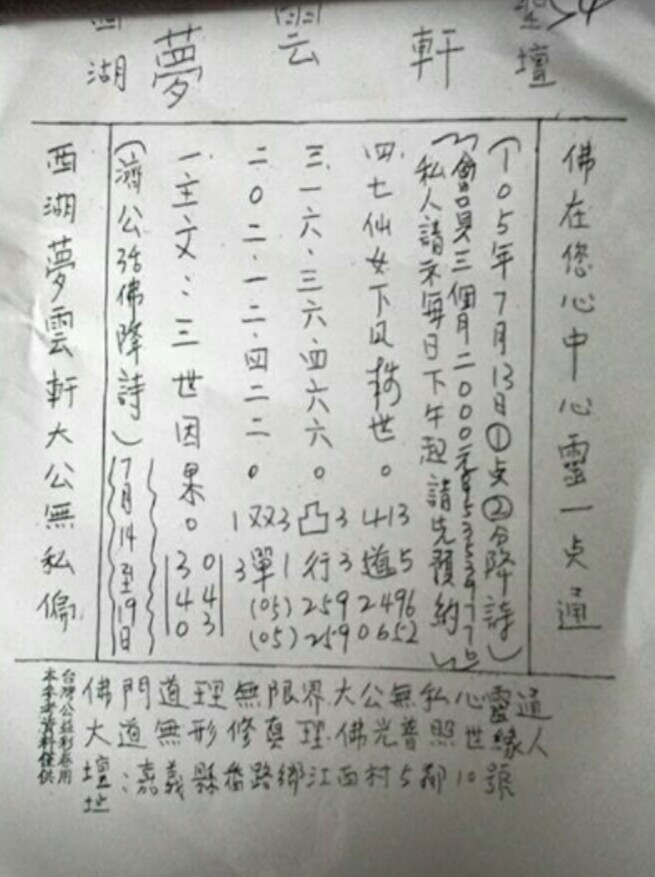 西湖 夢雲軒 聖壇
佛在您心中心靈一点通
(105年7月13日①点②分降詩)
會員三個月二000元
私人請示每日下午起請先預約
四.七仙女下凡救世。413道5
三.一六.三六.四六六。凸3行3
二0二.一二.四二二。1双3 3單1
(05)2592496
(05)2590652
一主文:三世因果。
340
043
(濟公活佛降詩)
7月14至19日
西湖夢雲軒大公無私偏
佛門道理無限界大公無私心靈通
大道無形修真理佛光普照世緣人
壇地:嘉義縣番路鄉江西村5鄰10號
台灣公益彩卷用
本參考資料僅供